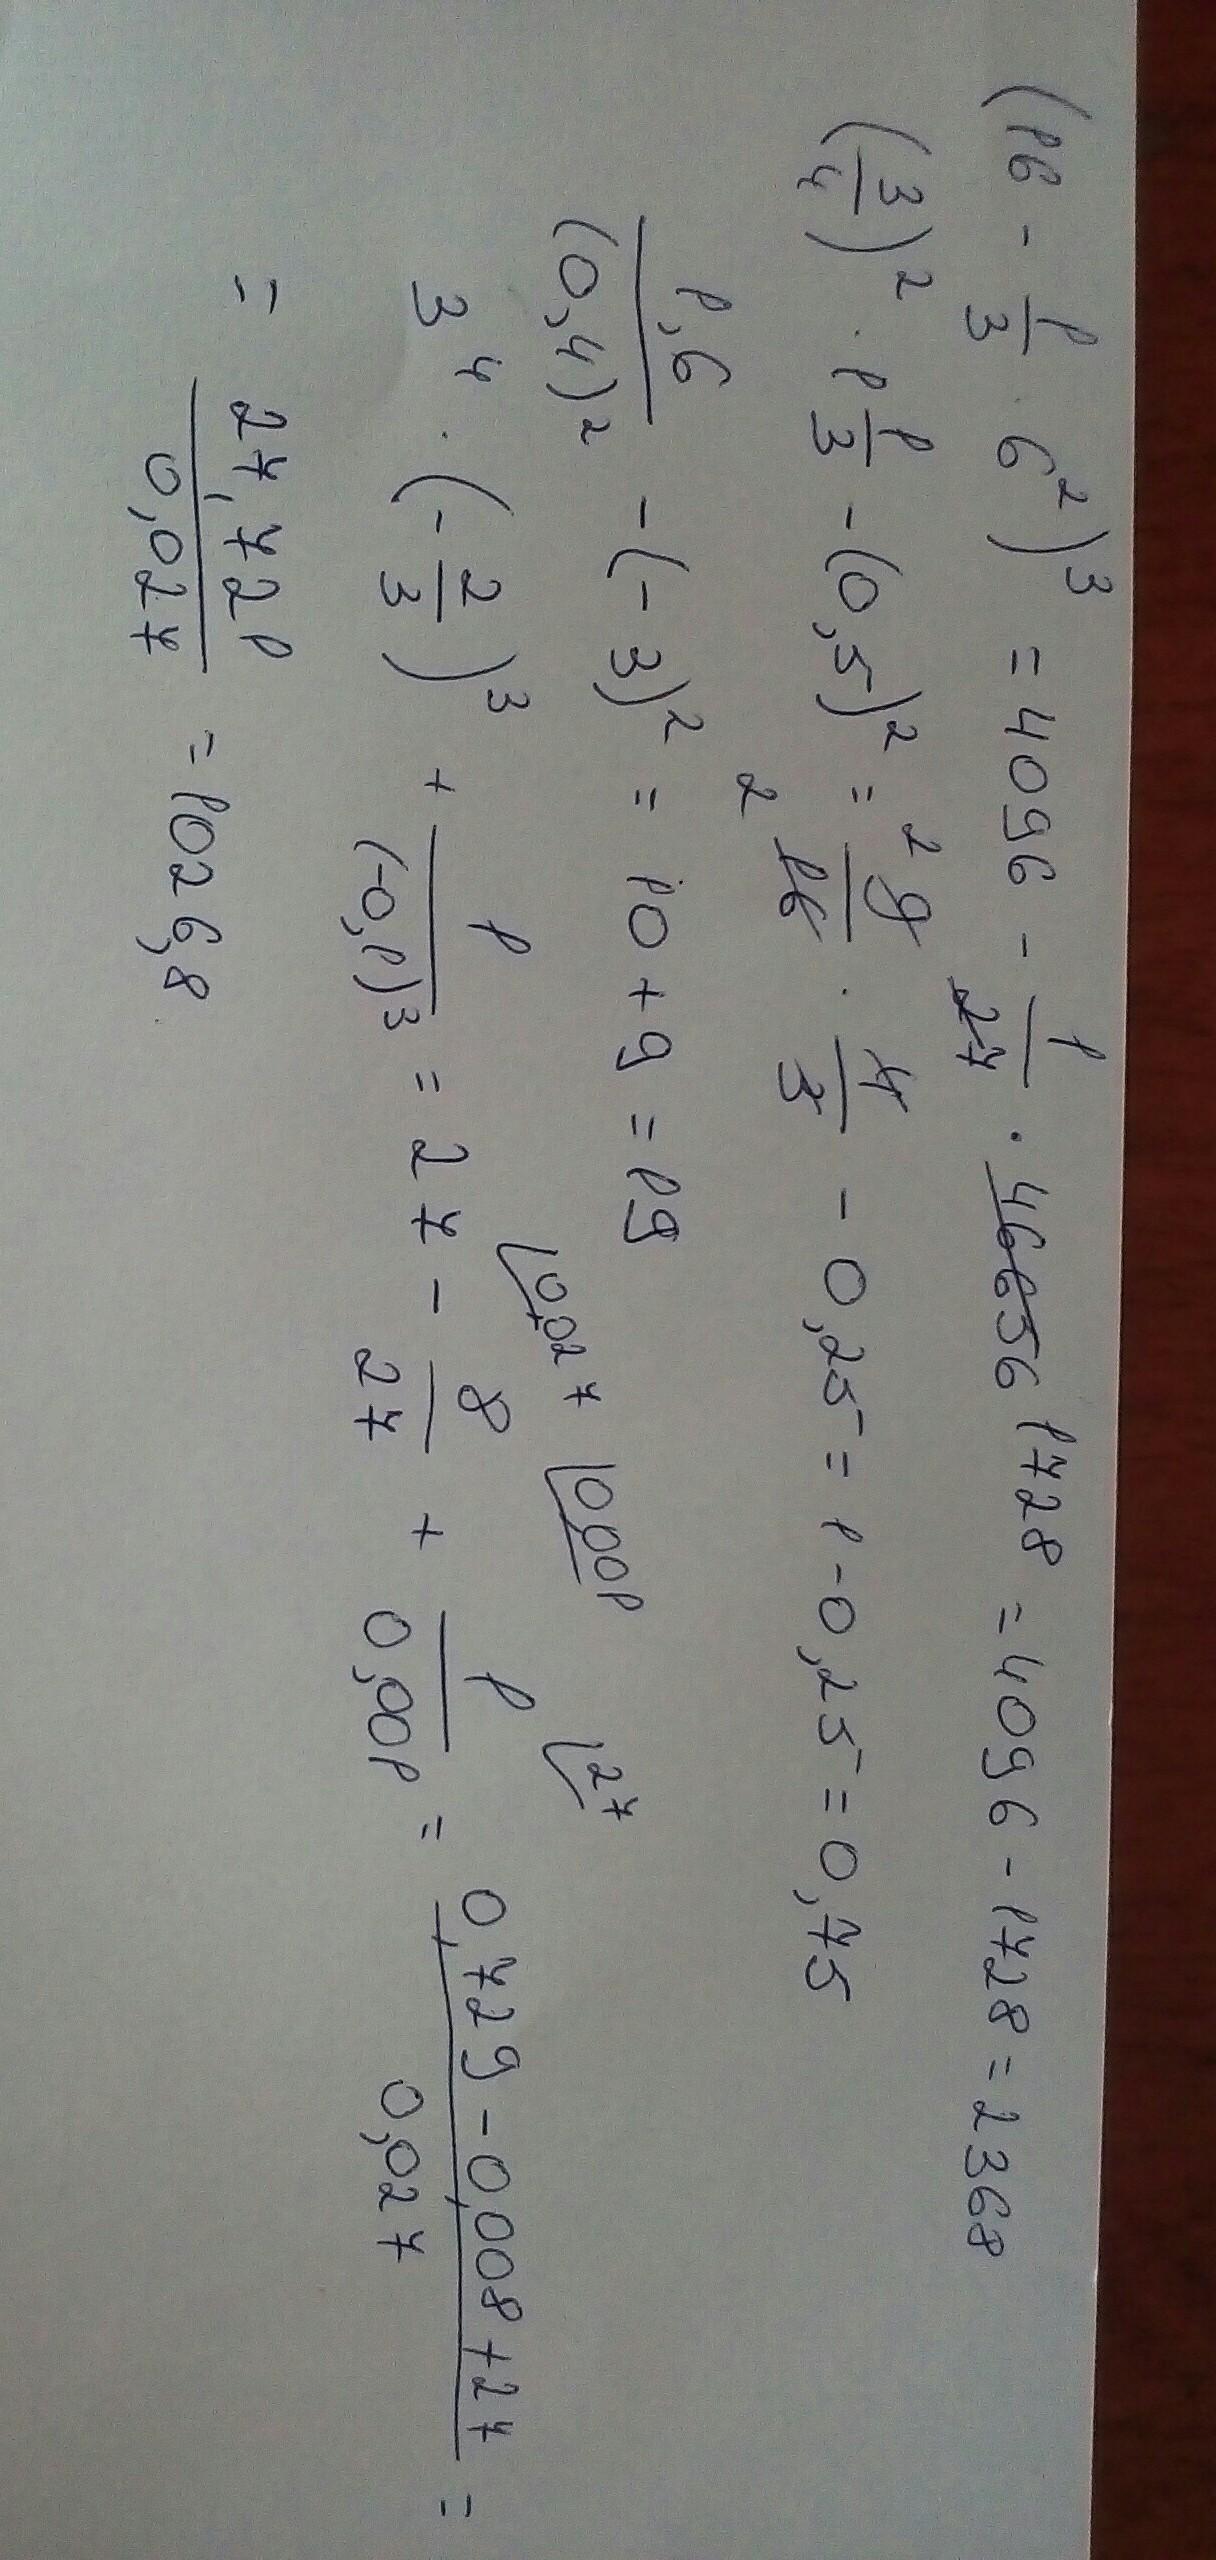 (16 - 1/3 · 6²)³ = 4096 - 1/27 · 46656 1728 = 4096 - 1728 = 2368
(3/4)² · 1 1/3 - (0,5)² = 2 9/16 2 · 4/3 - 0,25 = 1 - 0,25 = 0,75
1,6/(0,4)² - (-3)² = 10 + 9 = 19
3⁴ · (-2/3)³ + 1/(-0,1)³ = 27 - 8/27 + 1/0,001 = 0,729 - 0,008 + 27/0,027 =
0,027 0,001 27
= 27,721/0,027 = 1026,8